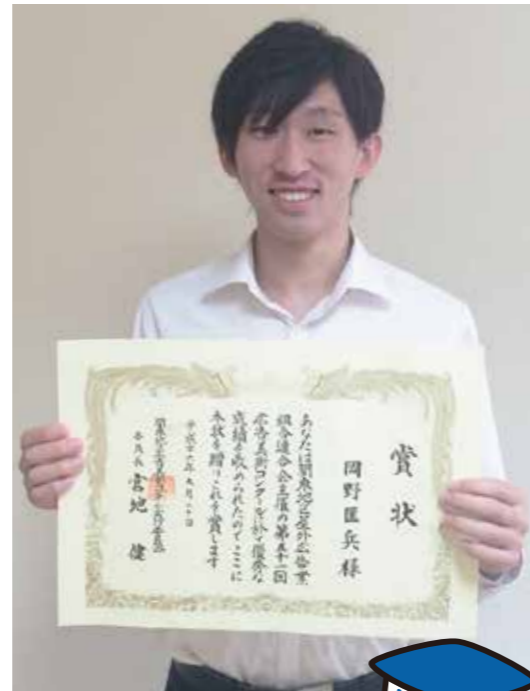 賞状
岡野匡兵様
あなたは関東地区屋外広告業
組合連合会主催の第五十一回
広告美術コンクールに於て優秀な
成績を収められたのでここに
本状を贈りこれを賞します
平成二十六年 九月二十日
会長 宮地 健